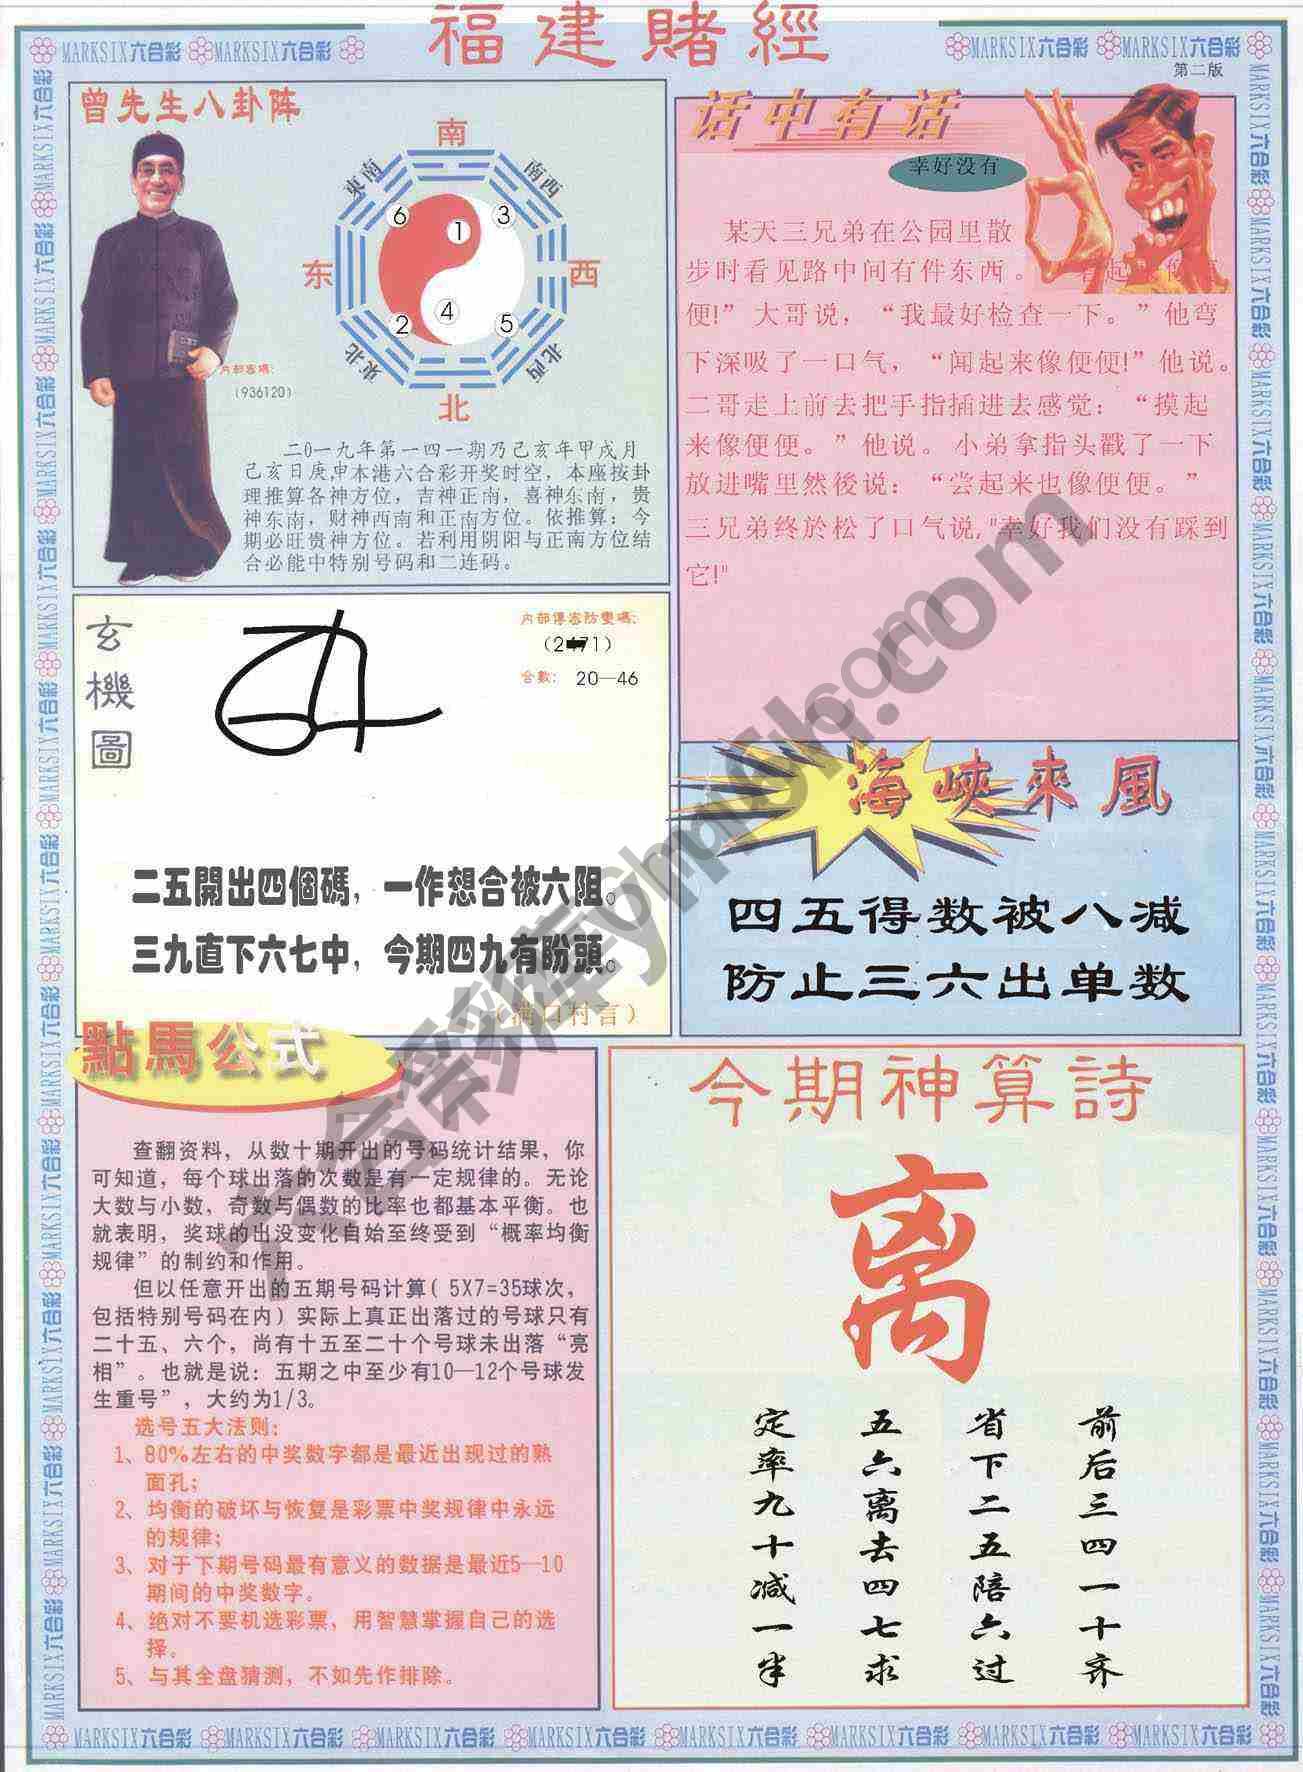 福建賭經
MARKSIX六合彩 MARKSIX六合彩
MARKSIX六合彩 MARKSIX六合彩
第二版
曾先生八卦阵
南
東南
南西
6
1
3
东
西
4
2
5
東北
北西
北
内部密碼：
(936120)
二0一九年第一四一期乃己亥年甲戌月
己亥日庚申本港六合彩开奖时空，本座按卦
理推算各神方位，吉神正南，喜神东南，贵
神东南，财神西南和正南方位。依推算：今
期必旺贵神方位。若利用阴阳与正南方位结
合必能中特别号码和二连码。
话中有话
幸好没有
某天三兄弟在公园里散
步时看见路中间有件东西。
便!”大哥说，“我最好检查一下。”他弯
下深吸了一口气，“闻起来像便便!”他说。
二哥走上前去把手指插进去感觉：“摸起
来像便便。”他说。小弟拿指头戳了一下
放进嘴里然後说：“尝起来也像便便。”
三兄弟终於松了口气说,"幸好我们没有踩到
它!"
玄機圖
内部傳密防變碼：
合數： 20—46
二五開出四個碼，一作想合被六阻。
三九直下六七中，今期四九有盼頭。
（满口村言）
海峽來風
四五得数被八减
防止三六出单数
點馬公式
查翻资料，从数十期开出的号码统计结果，你
可知道，每个球出落的次数是有一定规律的。无论
大数与小数，奇数与偶数的比率也都基本平衡。也
就表明，奖球的出没变化自始至终受到“概率均衡
规律”的制约和作用。
但以任意开出的五期号码计算( 5X7=35球次，
包括特别号码在内）实际上真正出落过的号球只有
二十五、六个，尚有十五至二十个号球未出落“亮
相”。也就是说：五期之中至少有10—12个号球发
生重号”，大约为1/3。
选号五大法则：
1、80%左右的中奖数字都是最近出现过的熟
面孔；
2、均衡的破坏与恢复是彩票中奖规律中永远
的规律；
3、对于下期号码最有意义的数据是最近5—10
期间的中奖数字。
4、绝对不要机选彩票，用智慧掌握自己的选
择。
5、与其全盘猜测，不如先作排除。
今期神算詩
离
前后三四一十齐
省下二五陪六过
五六离去四七求
定率九十减一半
MARKSIX六合彩 MARKSIX六合彩 MARKSIX六合彩 MARKSIX六合彩 MARKSIX六合彩 MARKSIX六合彩 MARKSIX六合彩 MARKSIX六合彩